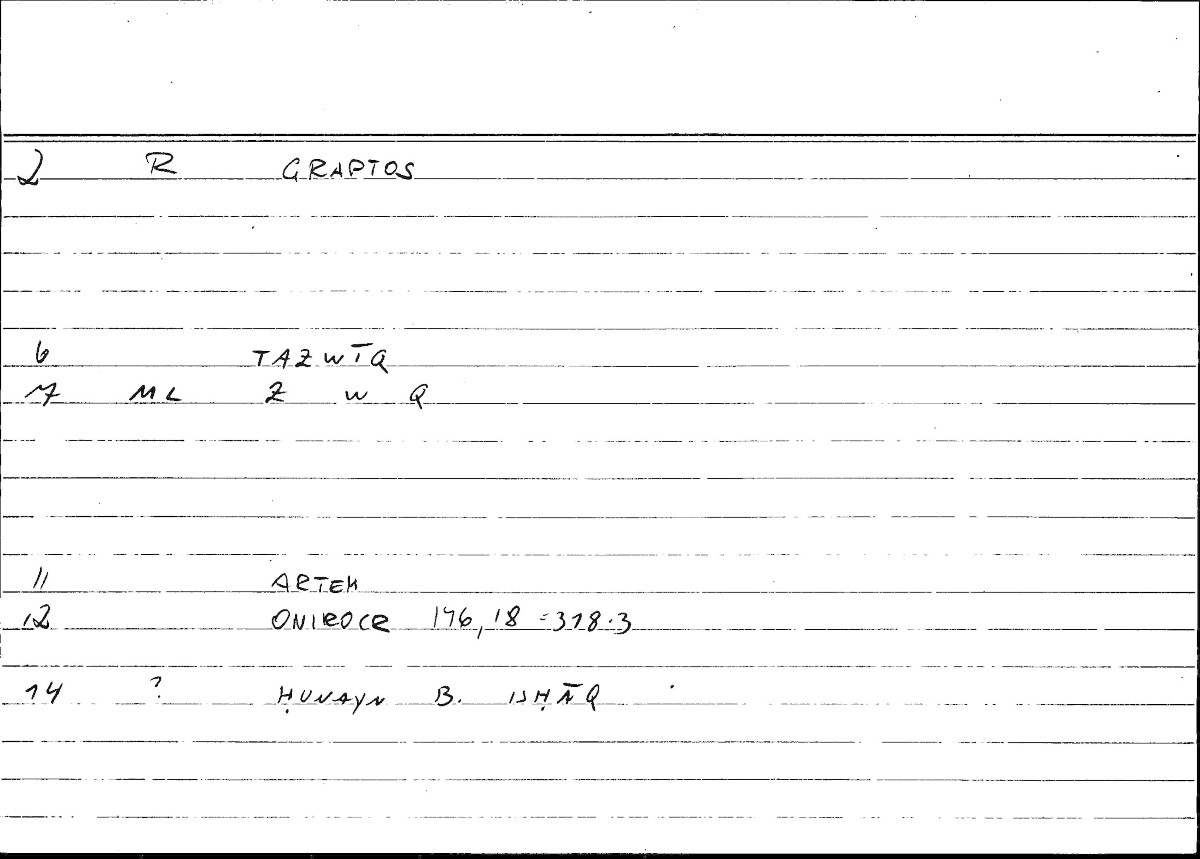 2 R GRAPTOS
6 TAZWĪQ
7 ML Z W Q
11 ARTEM
12 ONIROCR 176,18 =318.3
14 ? ḤUNAYN B. ISḤĀQ